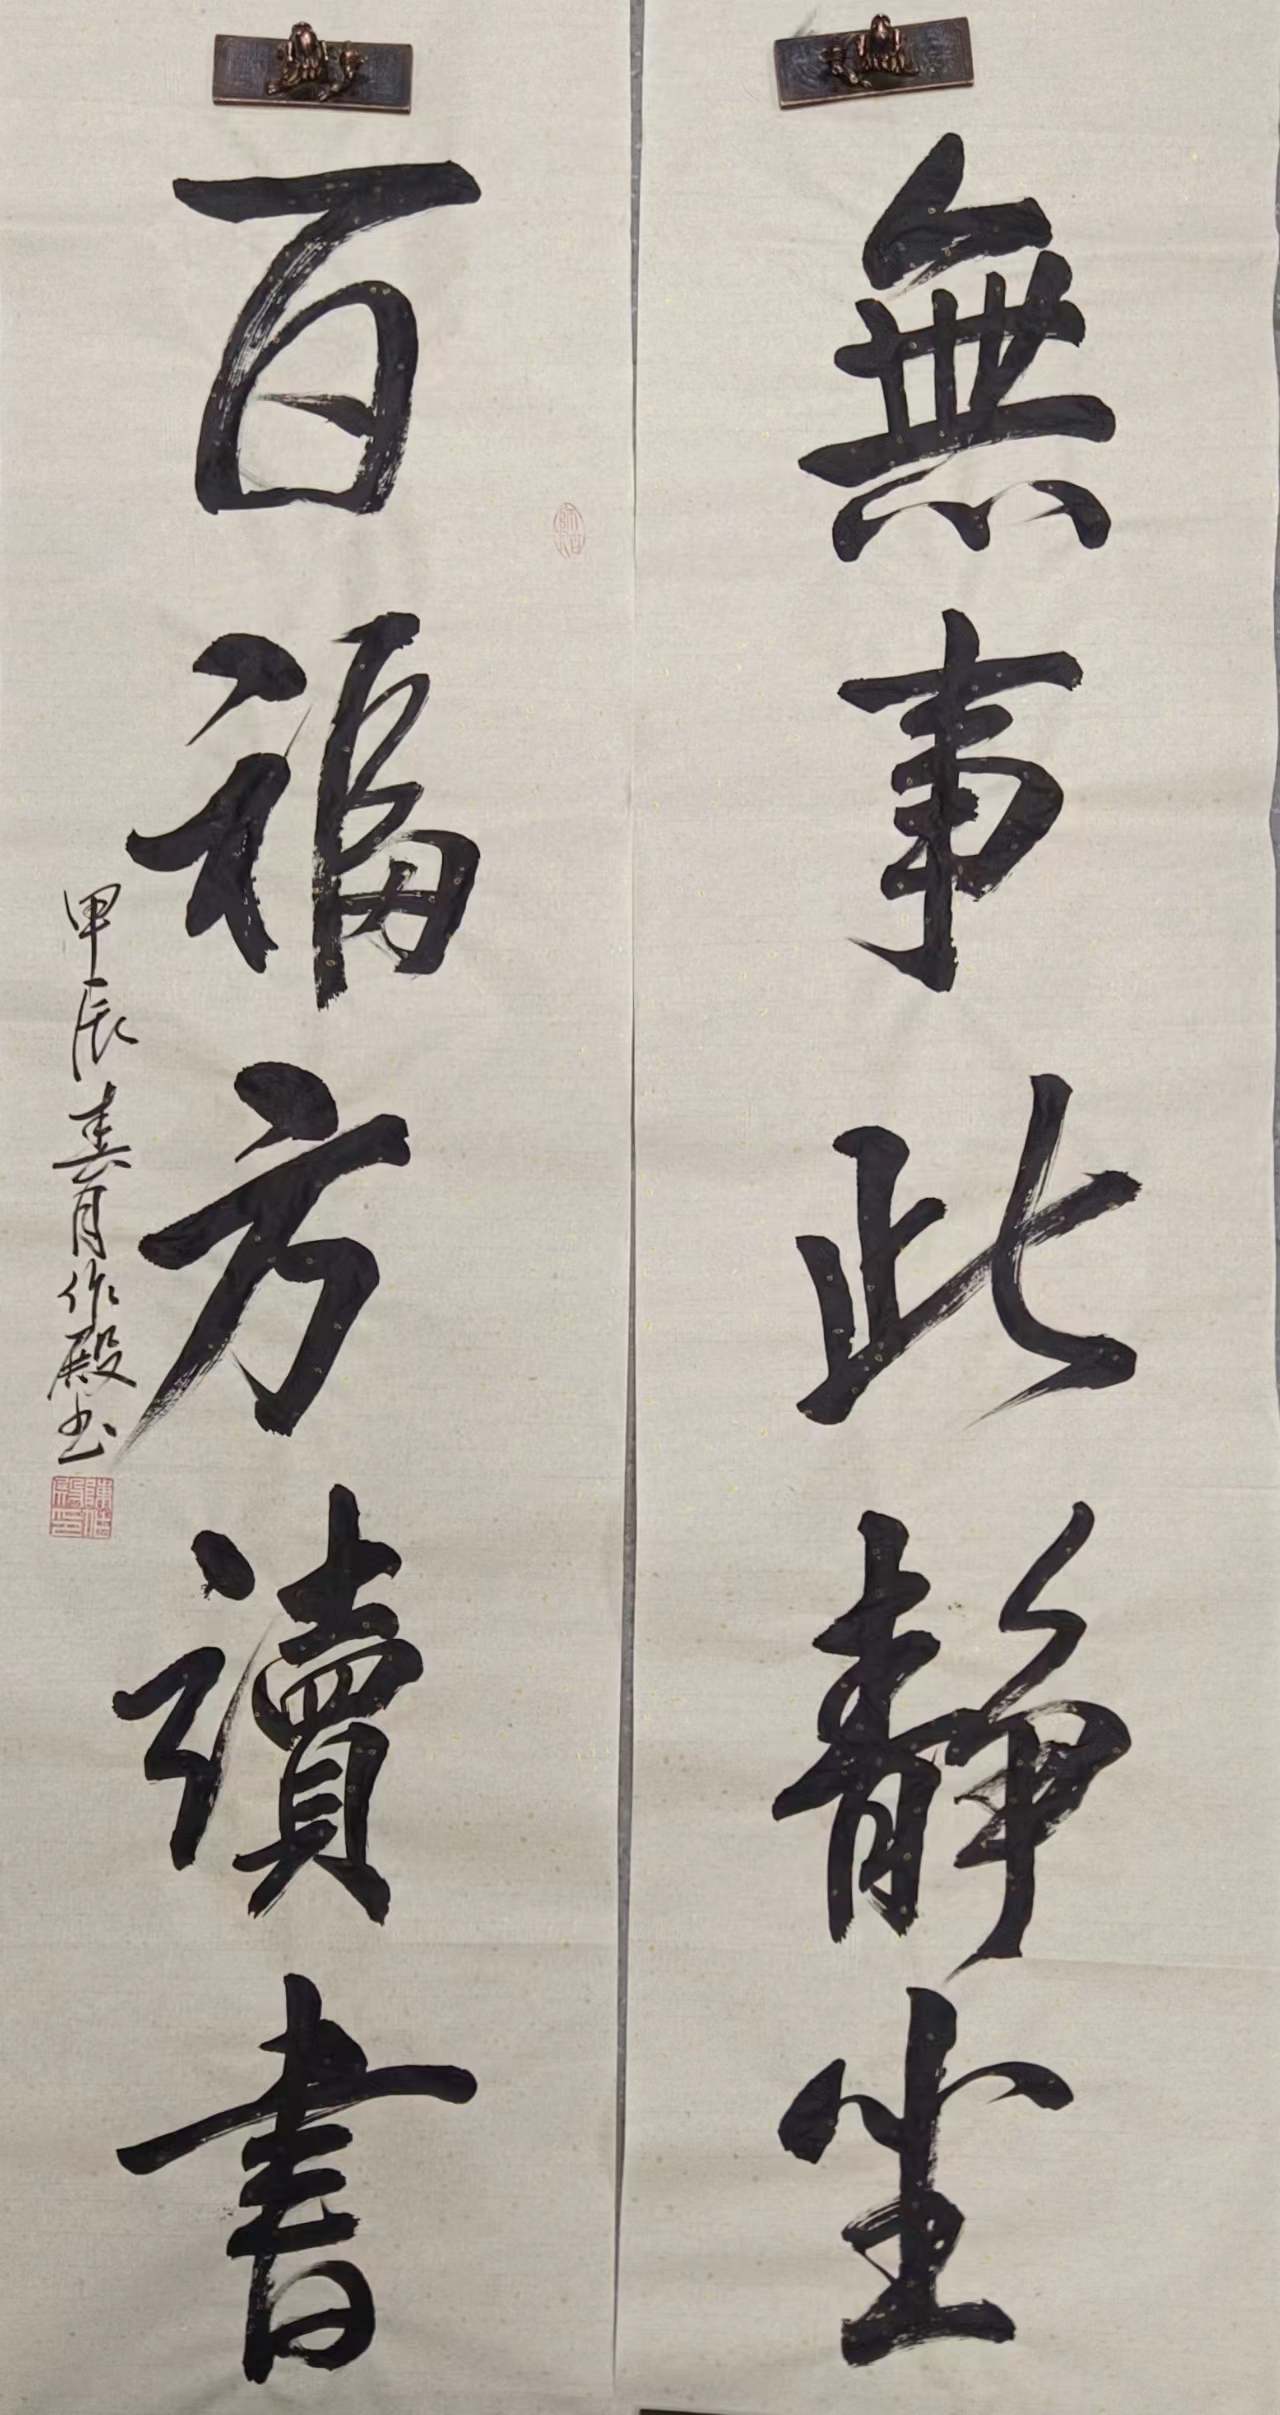 無事此静坐
百福方讀書
甲辰春月作殿书